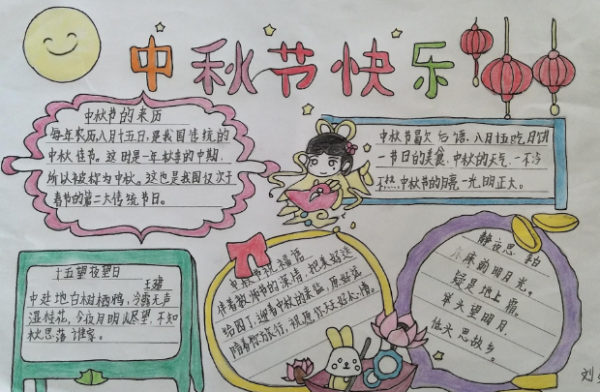 中秋节快乐
中秋节的来历
每年农历八月十五日,是我国传统的
中秋佳节。这时是一年秋季的中期,
所以被称为中秋。这也是我国仅次于
春节的第二大传统节日。
中秋节歇后语,八月十五吃月饼
一节日的美食,中秋的天气,一不冷
不热,中秋节的月亮一光明正大。
十五望夜望日
王建
中庭地白树栖鸦,冷露无声
湿桂花,今夜月明人尽望,不知
秋思落谁家。
中秋节祝福语
伴着教师节的深情,把美好送
给园丁,迎着中秋的来临,
陪着你旅行,祝愿你天天好心情。
静夜思 李白
床前明月光。
疑是地上霜。
举头望明月,
低头思故乡。
刘